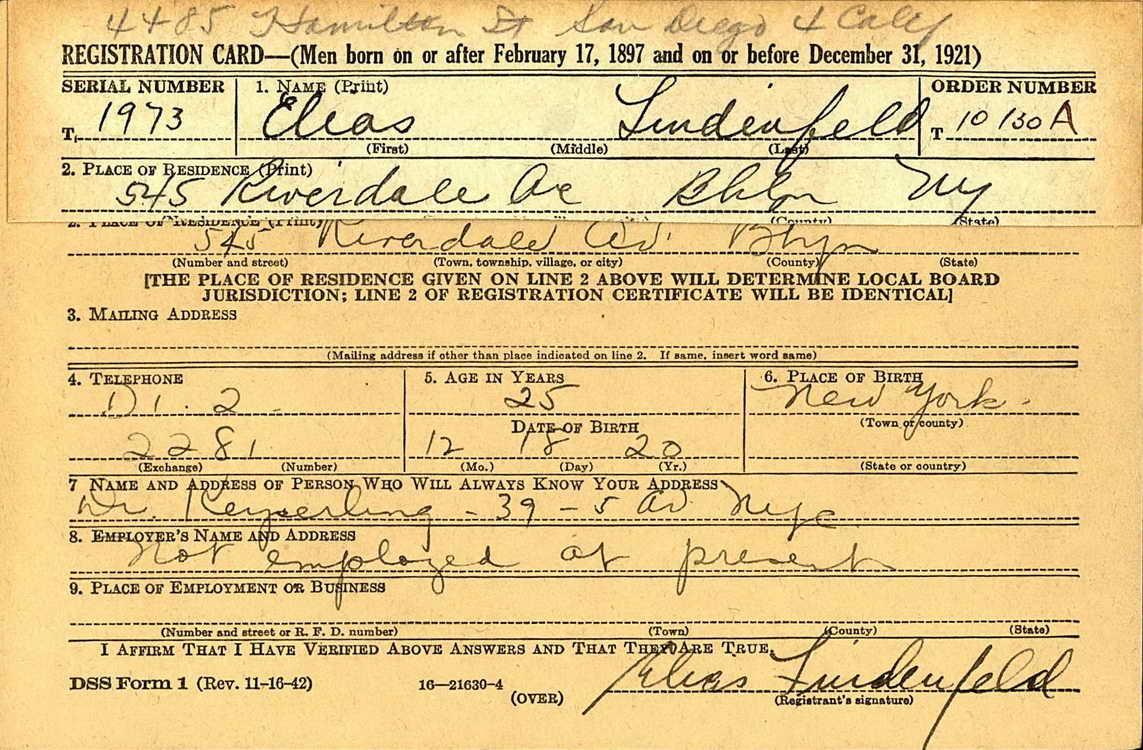 4485 Hamilton St San Diego 4 Calif
REGISTRATION CARD—(Men born on or after February 17, 1897 and on or before December 31, 1921)
SERIAL NUMBER 1. NAME (Print) ORDER NUMBER
T. 1973 Elias Lindenfeld T 10130A
(First) (Middle) (Last)
2. PLACE OF RESIDENCE (Print)
545 Riverdale Av Bklyn NY
(County) (State)
2. PLACE OF RESIDENCE (Print)
545 Riverdale Av. Bklyn
(Number and street) (Town, township, village, or city) (County) (State)
[THE PLACE OF RESIDENCE GIVEN ON LINE 2 ABOVE WILL DETERMINE LOCAL BOARD
JURISDICTION; LINE 2 OF REGISTRATION CERTIFICATE WILL BE IDENTICAL]
3. MAILING ADDRESS
(Mailing address if other than place indicated on line 2. If same, insert word same)
4. TELEPHONE 5. AGE IN YEARS 6. PLACE OF BIRTH
DI. 2 25 New York.
DATE OF BIRTH (Town or county)
2281 12 18 20
(Exchange) (Number) (Mo.) (Day) (Yr.) (State or country)
7 NAME AND ADDRESS OF PERSON WHO WILL ALWAYS KNOW YOUR ADDRESS
Dr. Keyserling - 39 - 5 Av NYC
8. EMPLOYER'S NAME AND ADDRESS
Not employed at present
9. PLACE OF EMPLOYMENT OR BUSINESS
(Number and street or R. F. D. number) (Town) (County) (State)
I AFFIRM THAT I HAVE VERIFIED ABOVE ANSWERS AND THAT THEY ARE TRUE.
DSS Form 1 (Rev. 11-16-42) 16—21630-4 Elias Lindenfeld
(OVER) (Registrant's signature)